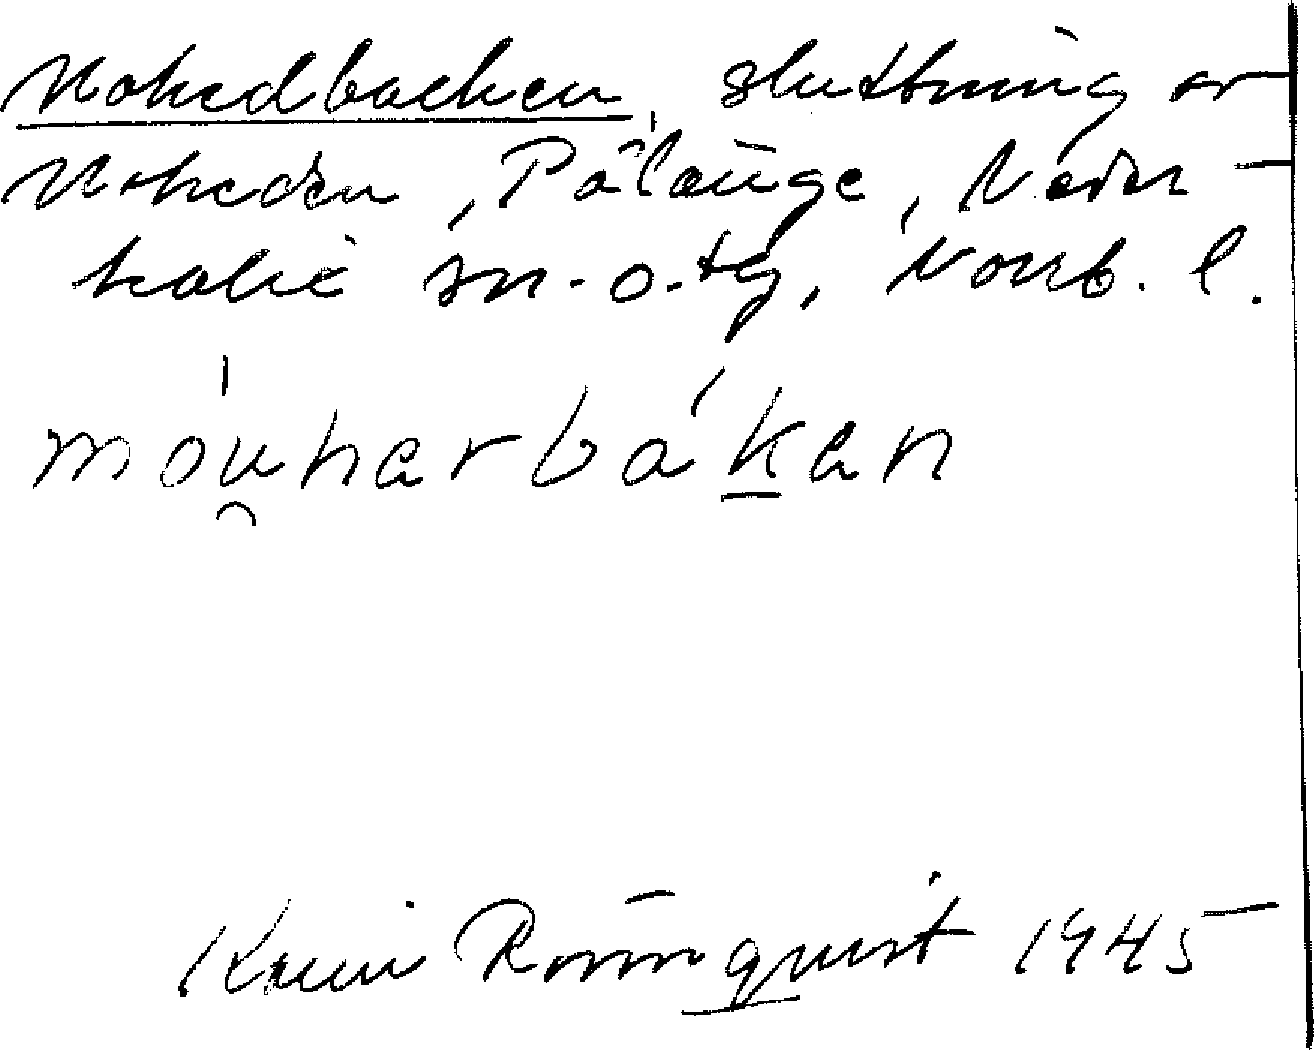 Mohedbacken, sluttning av
Moheden, Pålänge, Neder-
kalix sn. o. tg, Norrb. l.
mou̯harbaken
Rönnqvist 1945